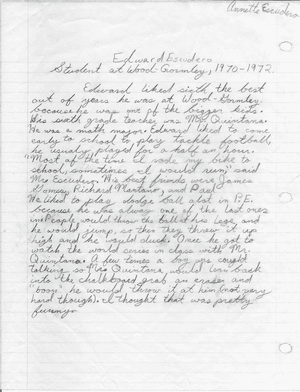 Annette Escudero
Edward Escudero
Student at Wood Gormley, 1970-1972
Edward liked sixth the best
out of years he was at Wood-Gormley
because he was one of the bigger kids.
His sixth grade teacher was Mr. Quintana.
He was a math major. Edward liked to come
early to school to play tackle football,
he usually played for a half an hour.
Most of the time "I rode my bike to
school, sometimes I would run," said
Mr. Escudero. His best friends were James
Gomez, Richard Montano, and Paul
He liked to play dodge ball alot in P.E.
because he was always one of the last ones
in. People would throw the ball at his legs, and
he would jump, so then they threw it up
high and he would duck. Once he got to
watch the world series in class with Mr.
Quintana. A few times a boy got caught
talking so Mr. Quintana would lean back
into the chalkboard grab an eraser and
"boom" he would throw it at him (not very
hard though). I thought that was pretty
funny.